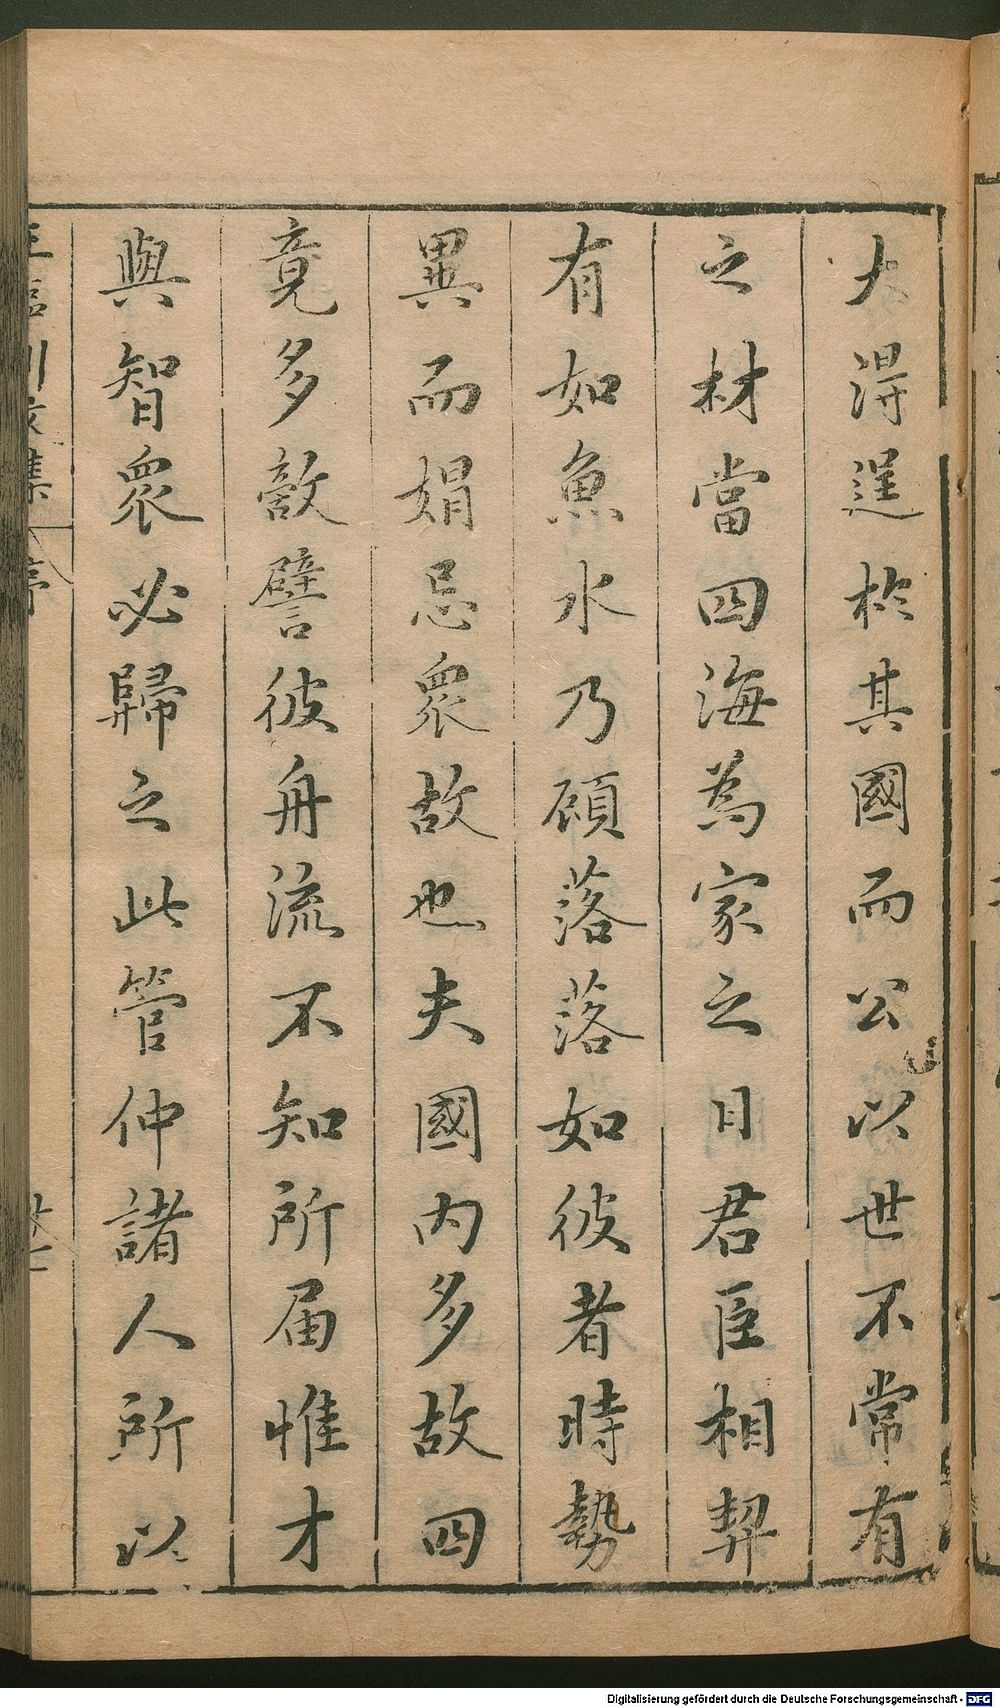 大得逞於其國而公以世不常有
之材當四海為家之日君臣相契
有如魚水乃顧落落如彼者時勢
異而娟忌衆故也夫國內多故四
竟多敵譬彼舟流不知所届惟才
與智衆必歸之此管仲諸人所以
王臨川文集 序
Digitalisierung gefördert durch die Deutsche Forschungsgemeinschaft - DFG